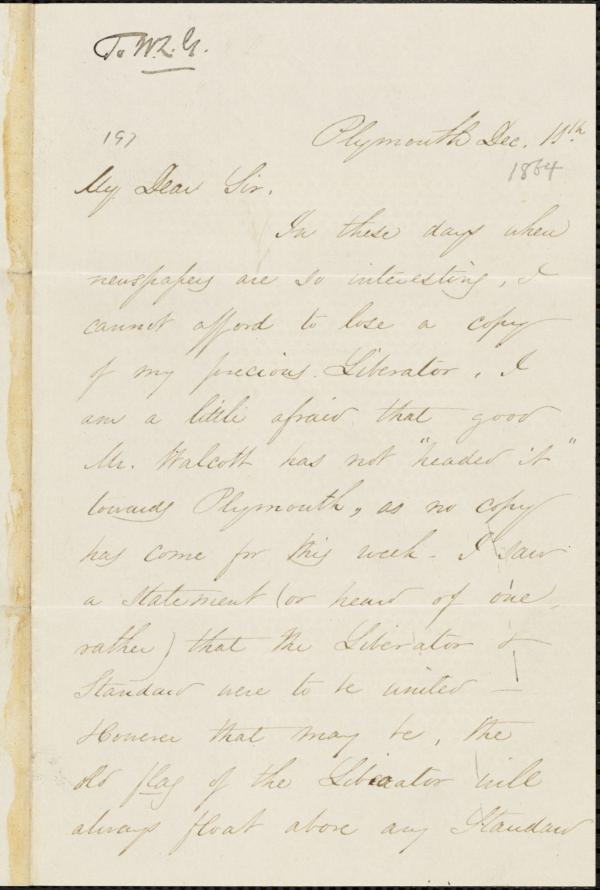 To W.L.G.
197
Plymouth Dec. 11th
1864
My Dear Sir,
In these days when
newspapers are so interesting, I
cannot afford to lose a copy
of my precious Liberator. I
am a little afraid that good
Mr. Walcott has not "headed it"
towards Plymouth, as no copy
has come for this week - I saw
a statement (or heard of one,
rather) that the Liberator &
Standard were to be united -
However that may be, the
old flag of the Liberator will
always float above any Standard